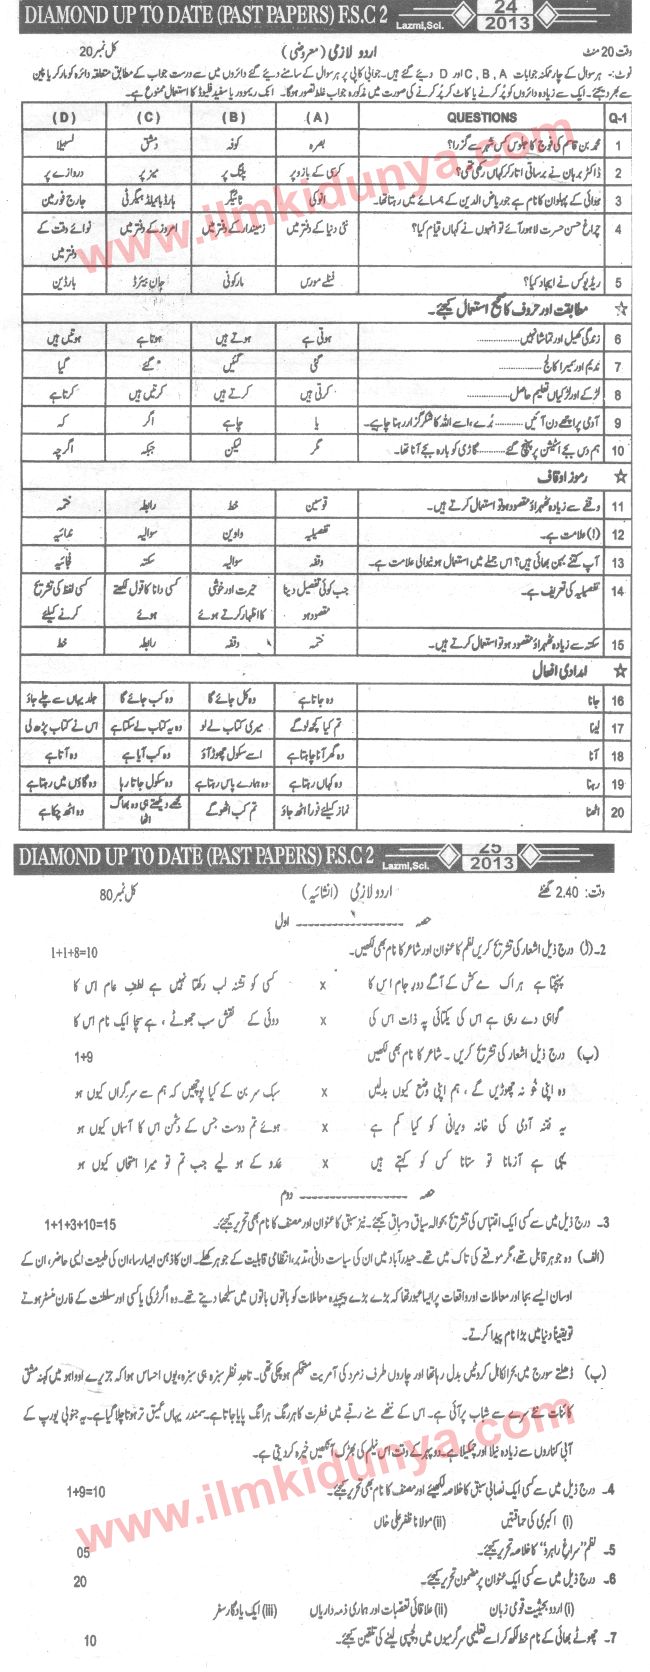 DIAMOND UP TO DATE (PAST PAPERS) F.S.C 2 Lazmi,Sci. 24 2013
وقت 20 منٹ اردو لازمی (معروضی) کل نمبر 20
نوٹ:- ہر سوال کے چار ممکنہ جوابات A, B, C اور D دیئے گئے ہیں۔ جوابی کاپی پر ہر سوال کے سامنے دیئے گئے دائروں میں سے درست جواب کے مطابق متعلقہ دائرہ کو مارکر یا پین
سے بھر دیجئے۔ ایک سے زیادہ دائروں کو پُر کرنے یا کاٹ کر پُر کرنے کی صورت میں مذکورہ جواب غلط تصور ہوگا۔ انک ریموور یا سفید فلیوڈ کا استعمال ممنوع ہے۔
Q-1 QUESTIONS (A) (B) (C) (D)
1 محمد بن قاسم کی فوج کا جلوس کس شہر سے گزرا؟ بصرہ کوفہ دمشق لسبیلا
2 ڈاکٹر برہان نے برساتی اتار کر کہاں رکھی تھی؟ کرسی کے بازو پر پلنگ پر میز پر دروازے پر
3 ہوائی کے پہلوان کا نام ہے جو ریاض الدین کے ہمسائے میں رہتا تھا۔ انوکی ٹائیگر ہارڈ بائیلڈ ہیگرٹی جارج فورمین
4 چراغ حسن حسرت لاہور آئے تو انہوں نے کہاں قیام کیا؟ نئی دنیا کے دفتر میں زمیندار کے دفتر میں امروز کے دفتر میں نوائے وقت کے
دفتر میں
5 ریڈیو کس نے ایجاد کیا؟ فیلے مورس مارکونی جان بیئرڈ بارڈین
☆ مطابقت اور حروف کا صحیح استعمال کیجئے۔
6 زندگی کھیل اور تماشا نہیں ............ ہوتی ہے ہوتے ہیں ہوتا ہے ہوتیں ہیں
7 ندیم اور سمیرا کالج ............ گئی گئیں گئے گیا
8 لڑکے اور لڑکیاں تعلیم حاصل ............ کرتی ہیں کرتے ہیں کرتیں ہیں کرتا ہے
9 آدمی پر اچھے دن آئیں ............ بُرے، اسے اللہ کا شکر گزار رہنا چاہیے۔ یا چاہے اگر کہ
10 ہم دس بجے اسٹیشن پر پہنچ گئے ............ گاڑی کو بارہ بجے آنا تھا۔ مگر لیکن جبکہ اگرچہ
☆ رموز اوقاف
11 وقفے سے زیادہ ٹھہراؤ مقصود ہو تو استعمال کرتے ہیں۔ قوسین خط رابطہ ختمہ
12 (!) علامت ہے۔ تفصیلیہ واوین سوالیہ ندائیہ
13 آپ کتنے بہن بھائی ہیں؟ اس جملے میں استعمال ہونیوالی علامت ہے۔ وقفہ سوالیہ سکتہ فجائیہ
14 تفصیلیہ کی تعریف ہے۔ جب کوئی تفصیل دینا حیرت اور خوشی کسی دانا کا قول لکھتے کسی لفظ کی تشریح
مقصود ہو کا اظہار کرتے ہوئے ہوئے کرنے کیلئے
15 سکتہ سے زیادہ ٹھہراؤ مقصود ہو تو استعمال کرتے ہیں۔ ختمہ وقفہ رابطہ خط
☆ امدادی افعال
16 جانا وہ جاتا ہے وہ کل جائے گا وہ کب جائے گا جلد یہاں سے چلے جاؤ
17 لینا تم کیا کچھ لو گے میری کتاب لے لو وہ یہ کتاب لے سکتا ہے اس نے کتاب پڑھ لی
18 آنا وہ گھر آنا چاہتا ہے اسے سکول چھوڑ آؤ وہ کب آیا ہے وہ آتا ہے
19 رہنا وہ کہاں رہتا ہے وہ ہمارے پاس رہتا ہے وہ سکول جاتا رہا وہ گاؤں میں رہتا ہے
20 اٹھنا نماز کیلئے فوراً اٹھ جاؤ تم کب اٹھو گے مجھے دیکھتے ہی وہ بھاگ وہ اٹھ چکا ہے
اٹھا
DIAMOND UP TO DATE (PAST PAPERS) F.S.C 2 Lazmi,Sci. 25 2013
وقت: 2.40 گھنٹے اردو لازمی (انشائیہ) کل نمبر 80
حصہ ---------------- اول
2۔ (ا) درج ذیل اشعار کی تشریح کریں نظم کا عنوان اور شاعر کا نام بھی لکھیں۔ 1+1+8=10
پہنچتا ہے ہر اک مے کش کے آگے دورِ جام اس کا x کسی کو تشنہ لب رکھتا نہیں ہے لطفِ عام اس کا
گواہی دے رہی ہے اس کی یکتائی پہ ذات اس کی x دوئی کے نقش سب جھوٹے، ہے سچا ایک نام اس کا
(ب) درج ذیل اشعار کی تشریح کریں۔ شاعر کا نام بھی لکھیں 1+9
وہ اپنی خُو نہ چھوڑیں گے، ہم اپنی وضع کیوں بدلیں x سبک سر بن کے کیا پوچھیں کہ ہم سے سرگراں کیوں ہو
یہ فتنہ آدمی کی خانہ ویرانی کو کیا کم ہے x ہوئے تم دوست جس کے دشمن اس کا آسماں کیوں ہو
یہی ہے آزمانا تو ستانا کس کو کہتے ہیں x عدو کے ہو لیے جب تم تو میرا امتحاں کیوں ہو
حصہ ---------------- دوم
3۔ درج ذیل میں سے کسی ایک اقتباس کی تشریح بحوالہ سیاق و سباق کیجئے۔ نیز سبق کا عنوان اور مصنف کا نام بھی تحریر کیجئے۔ 1+1+3+10=15
(الف) وہ جوہر قابل تھے، مگر موقعے کی تاک میں تھے۔ حیدر آباد میں ان کی سیاست دانی، تدبر، انتظامی قابلیت کے جوہر کھلے۔ ان کا ذہن ایسا رسا، ان کی طبیعت ایسی حاضر، ان کے
اوسان ایسے بجا اور معاملات اور واقعات پر ایسا عبور تھا کہ بڑے بڑے پیچیدہ معاملات کو باتوں باتوں میں سلجھا دیتے تھے۔ وہ اگر ٹرکی یا کسی اور سلطنت کے فارن منسٹر ہوتے
تو یقیناً دنیا میں بڑا نام پیدا کرتے۔
(ب) ڈھلتے سورج میں بحرالکاہل کروٹیں بدل رہا تھا اور چاروں طرف زمرد کی آمریت مستحکم ہو چکی تھی۔ تاحدِ نظر سبزہ ہی سبزہ، یوں احساس ہوا کہ جزیرے اوواہو میں کہنہ مشق
کائنات نئے سرے سے شباب پر آئی ہے۔ اس کے ننھے سنے رقبے میں فطرت کا ہر رنگ ہر انگ پایا جاتا ہے۔ سمندر یہاں عمیق تر ہوتا چلا گیا ہے۔ یہ جنوبی یورپ کے
آبی کناروں سے زیادہ نیلا اور چمکیلا ہے۔ دوپہر کے وقت اس نیلم کی بھڑک آنکھیں خیرہ کر دیتی ہے۔
4۔ درج ذیل میں سے کسی ایک نصابی سبق کا خلاصہ لکھیئے اور مصنف کا نام بھی تحریر کیجئے۔ 1+9=10
(i) اکبری کی حماقتیں (ii) مولانا ظفر علی خاں
5۔ نظم "سراغِ راہرو" کا خلاصہ تحریر کیجئے۔ 05
6۔ درج ذیل میں سے کسی ایک عنوان پر مضمون تحریر کیجئے۔ 20
(i) اردو بحیثیت قومی زبان (ii) علاقائی تعصبات اور ہماری ذمہ داریاں (iii) ایک یادگار سفر
7۔ چھوٹے بھائی کے نام خط لکھ کر اسے تعلیمی سرگرمیوں میں دلچسپی لینے کی تلقین کیجئے۔ 10
www.ilmkidunya.com
www.ilmkidunya.com